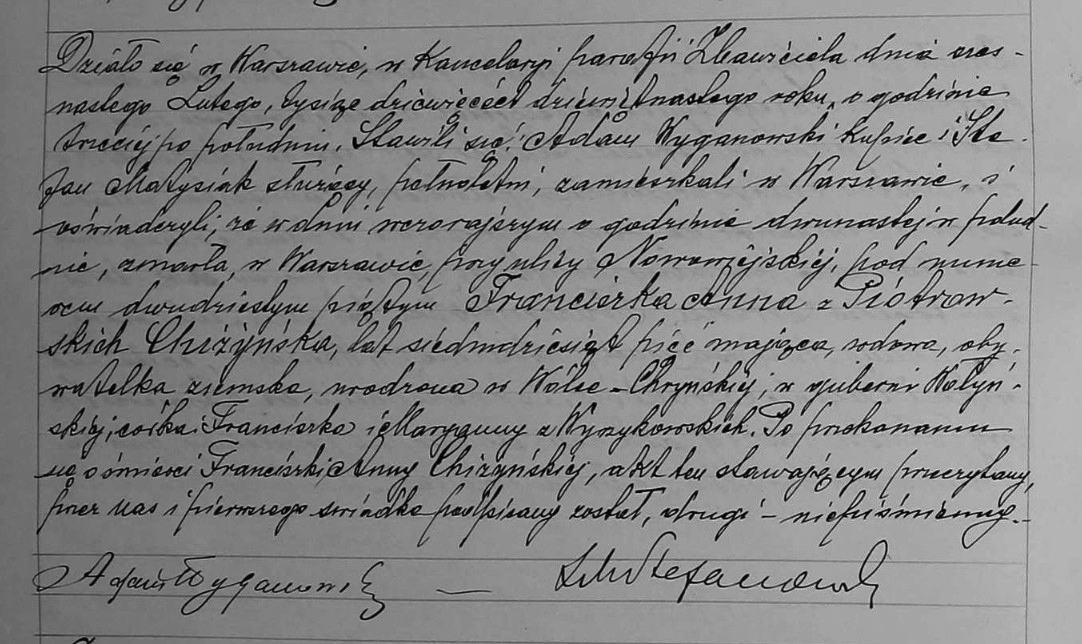 Działo się w Warszawie, w Kancelaryi parafii Zbawiciela dnia szes-
nastego Lutego, tysiąc dziewięćset dziewiętnastego roku, o godzinie
trzeciej po południu. Stawili się: Adam Wyganowski kupiec i Ste-
fan Małysiak służący, pełnoletni, zamieszkali w Warszawie, i
oświadczyli, że w dniu wczorajszym o godzinie dwunastej w połud-
nie, zmarła, w Warszawie, przy ulicy Nowowiejskiej, pod nume-
rem dwudziestym piątym Franciszka Anna z Piotrow-
skich Chiżyńska, lat siedmdziesiąt pięć mająca, wdowa, oby-
watelka ziemska, urodzona w Wólce-Chryńskiej, w guberni Wołyń-
skiej, córka Franciszka i Maryanny z Wyrzykowskich. Po przekonaniu
się o śmierci Franciszki Anny Chiżyńskiej, akt ten stawającym przeczytany,
przez nas i pierwszego świadka podpisany został, drugi – niepiśmienny.-
Adam Wyganowski — Stefanowski